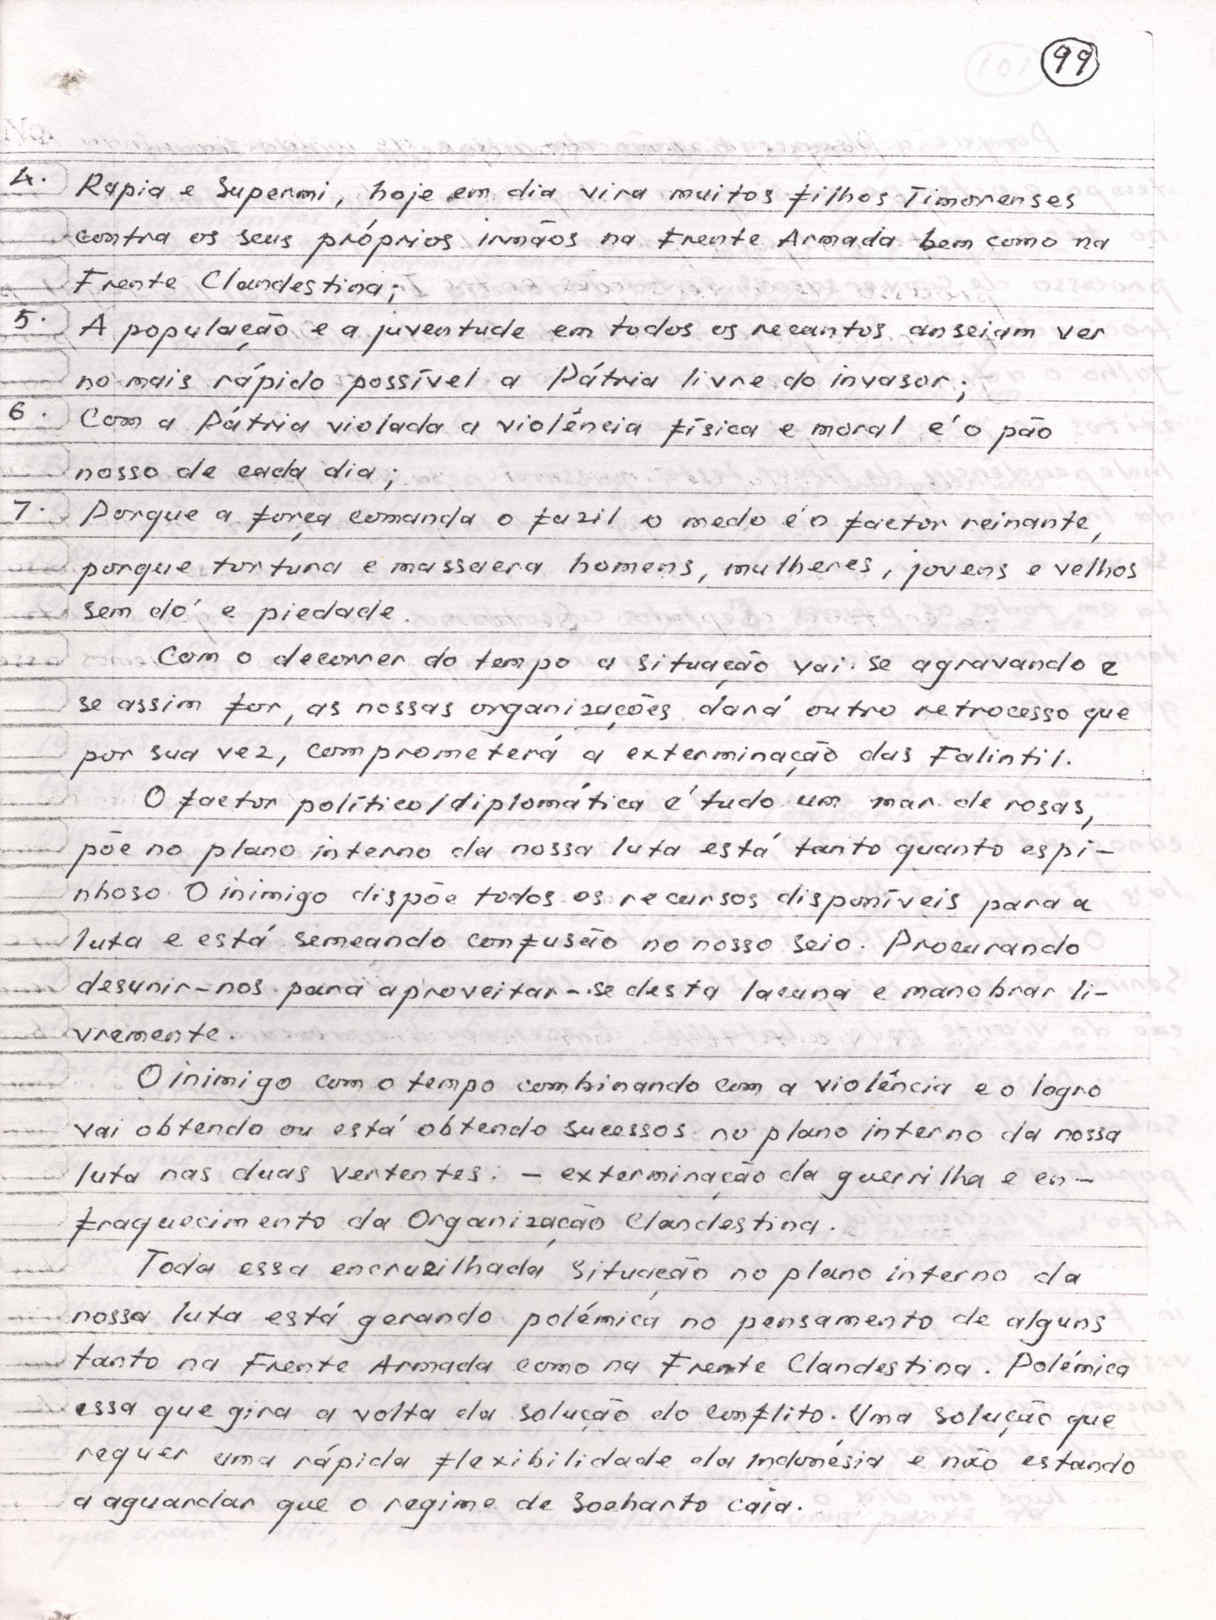 99
4. Rapia e Supermi, hoje em dia vira muitos filhos Timorenses
contra os seus próprios irmãos na Frente Armada bem como na
Frente Clandestina;
5. A população e a juventude em todos os recantos anseiam ver
no mais rápido possível a Pátria livre do invasor;
6. Com a Pátria violada a violência física e moral é o pão
nosso de cada dia;
7. Porque a força comanda o fuzil o medo é o factor reinante,
porque tortura e massacra homens, mulheres, jovens e velhos
sem dó e piedade.
Com o decorrer do tempo a situação vai se agravando e
se assim for, as nossas organizações dará outro retrocesso que
por sua vez, comprometerá a exterminação das Falintil.
O factor político/diplomática é tudo um mar de rosas,
põe no plano interno da nossa luta está tanto quanto espi-
nhoso O inimigo dispõe todos os recursos disponíveis para a
luta e está semeando confusão no nosso seio. Procurando
desunir-nos para aproveitar-se desta lacuna e manobrar li-
vremente.
O inimigo com o tempo combinando com a violência e o logro
vai obtendo ou está obtendo sucessos no plano interno da nossa
luta nas duas vertentes: - exterminação da guerrilha e en-
fraquecimento da Organização Clandestina.
Toda essa encruzilhada situação no plano interno da
nossa luta está gerando polémica no pensamento de alguns
tanto na Frente Armada como na Frente Clandestina. Polémica
essa que gira a volta da solução do conflito. Uma solução que
requer uma rápida flexibilidade da Indonésia e não estando
a aguardar que o regime de Soeharto caia.